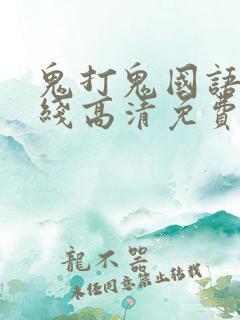 鬼打鬼國語
綫高清免費
龍不器
未经同意禁止转载